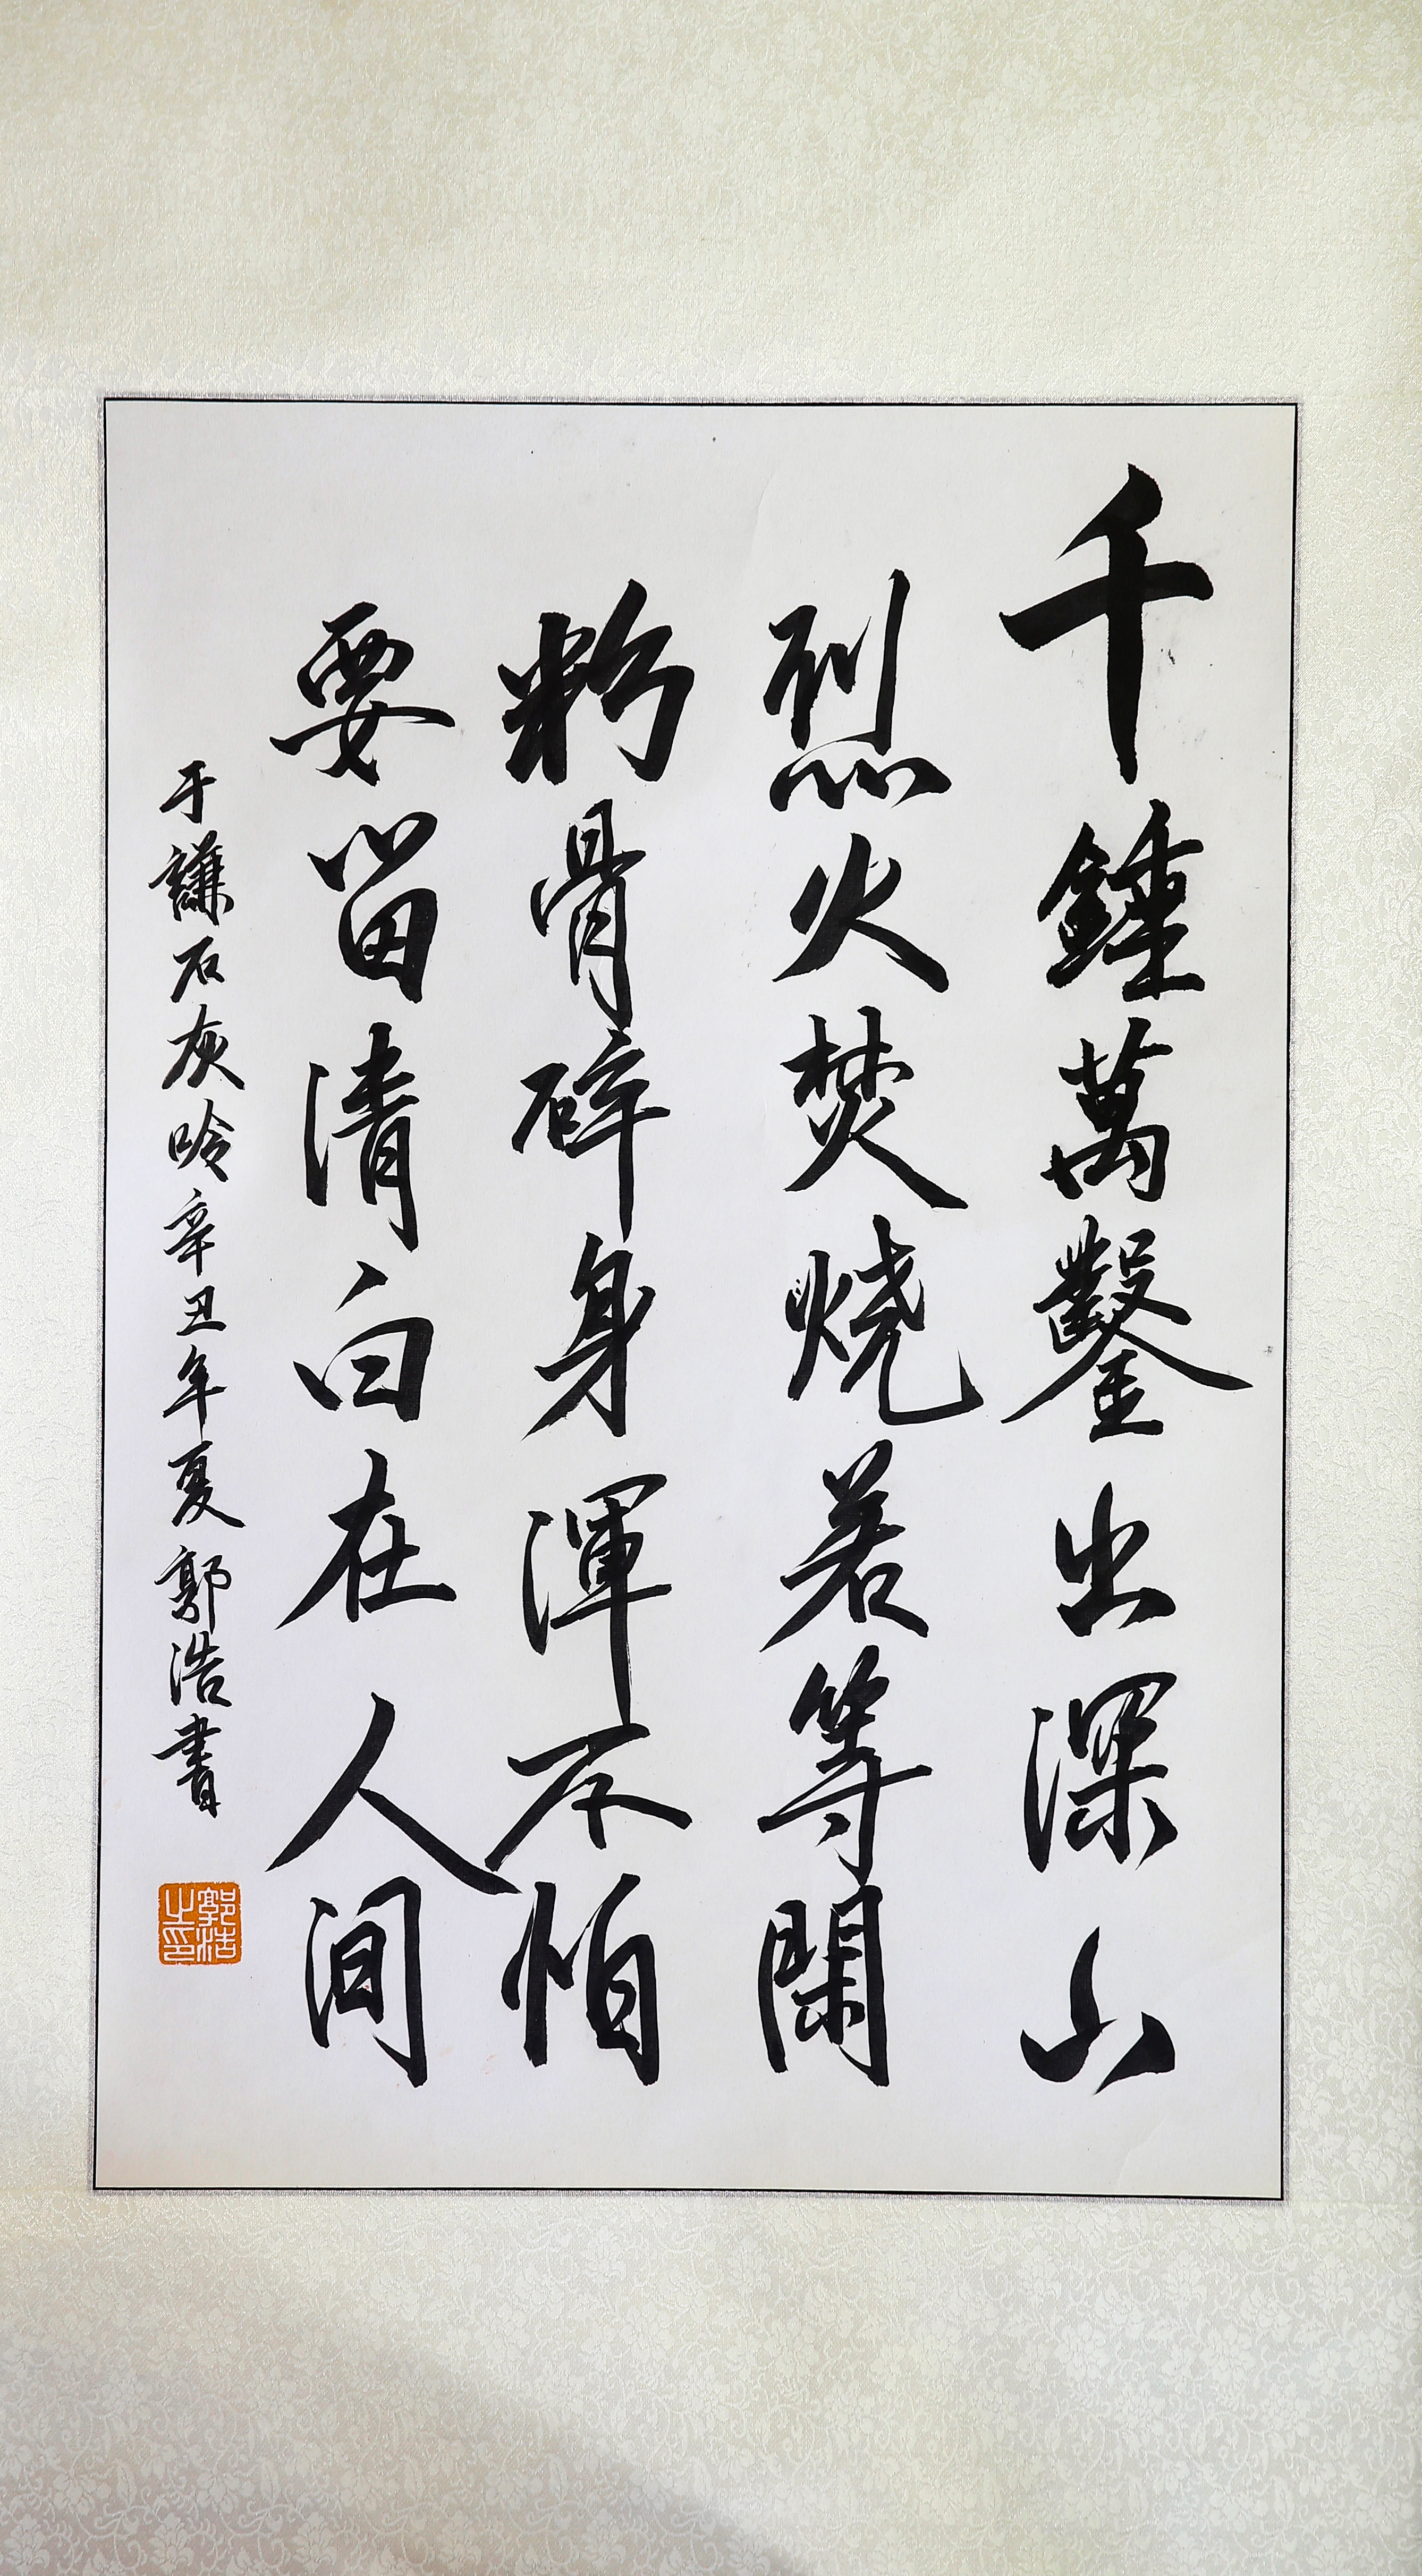 千錘萬鑿出深山
烈火焚燒若等閑
粉骨碎身渾不怕
要留清白在人间
于謙石灰吟辛丑年夏郭浩書
郭浩之印